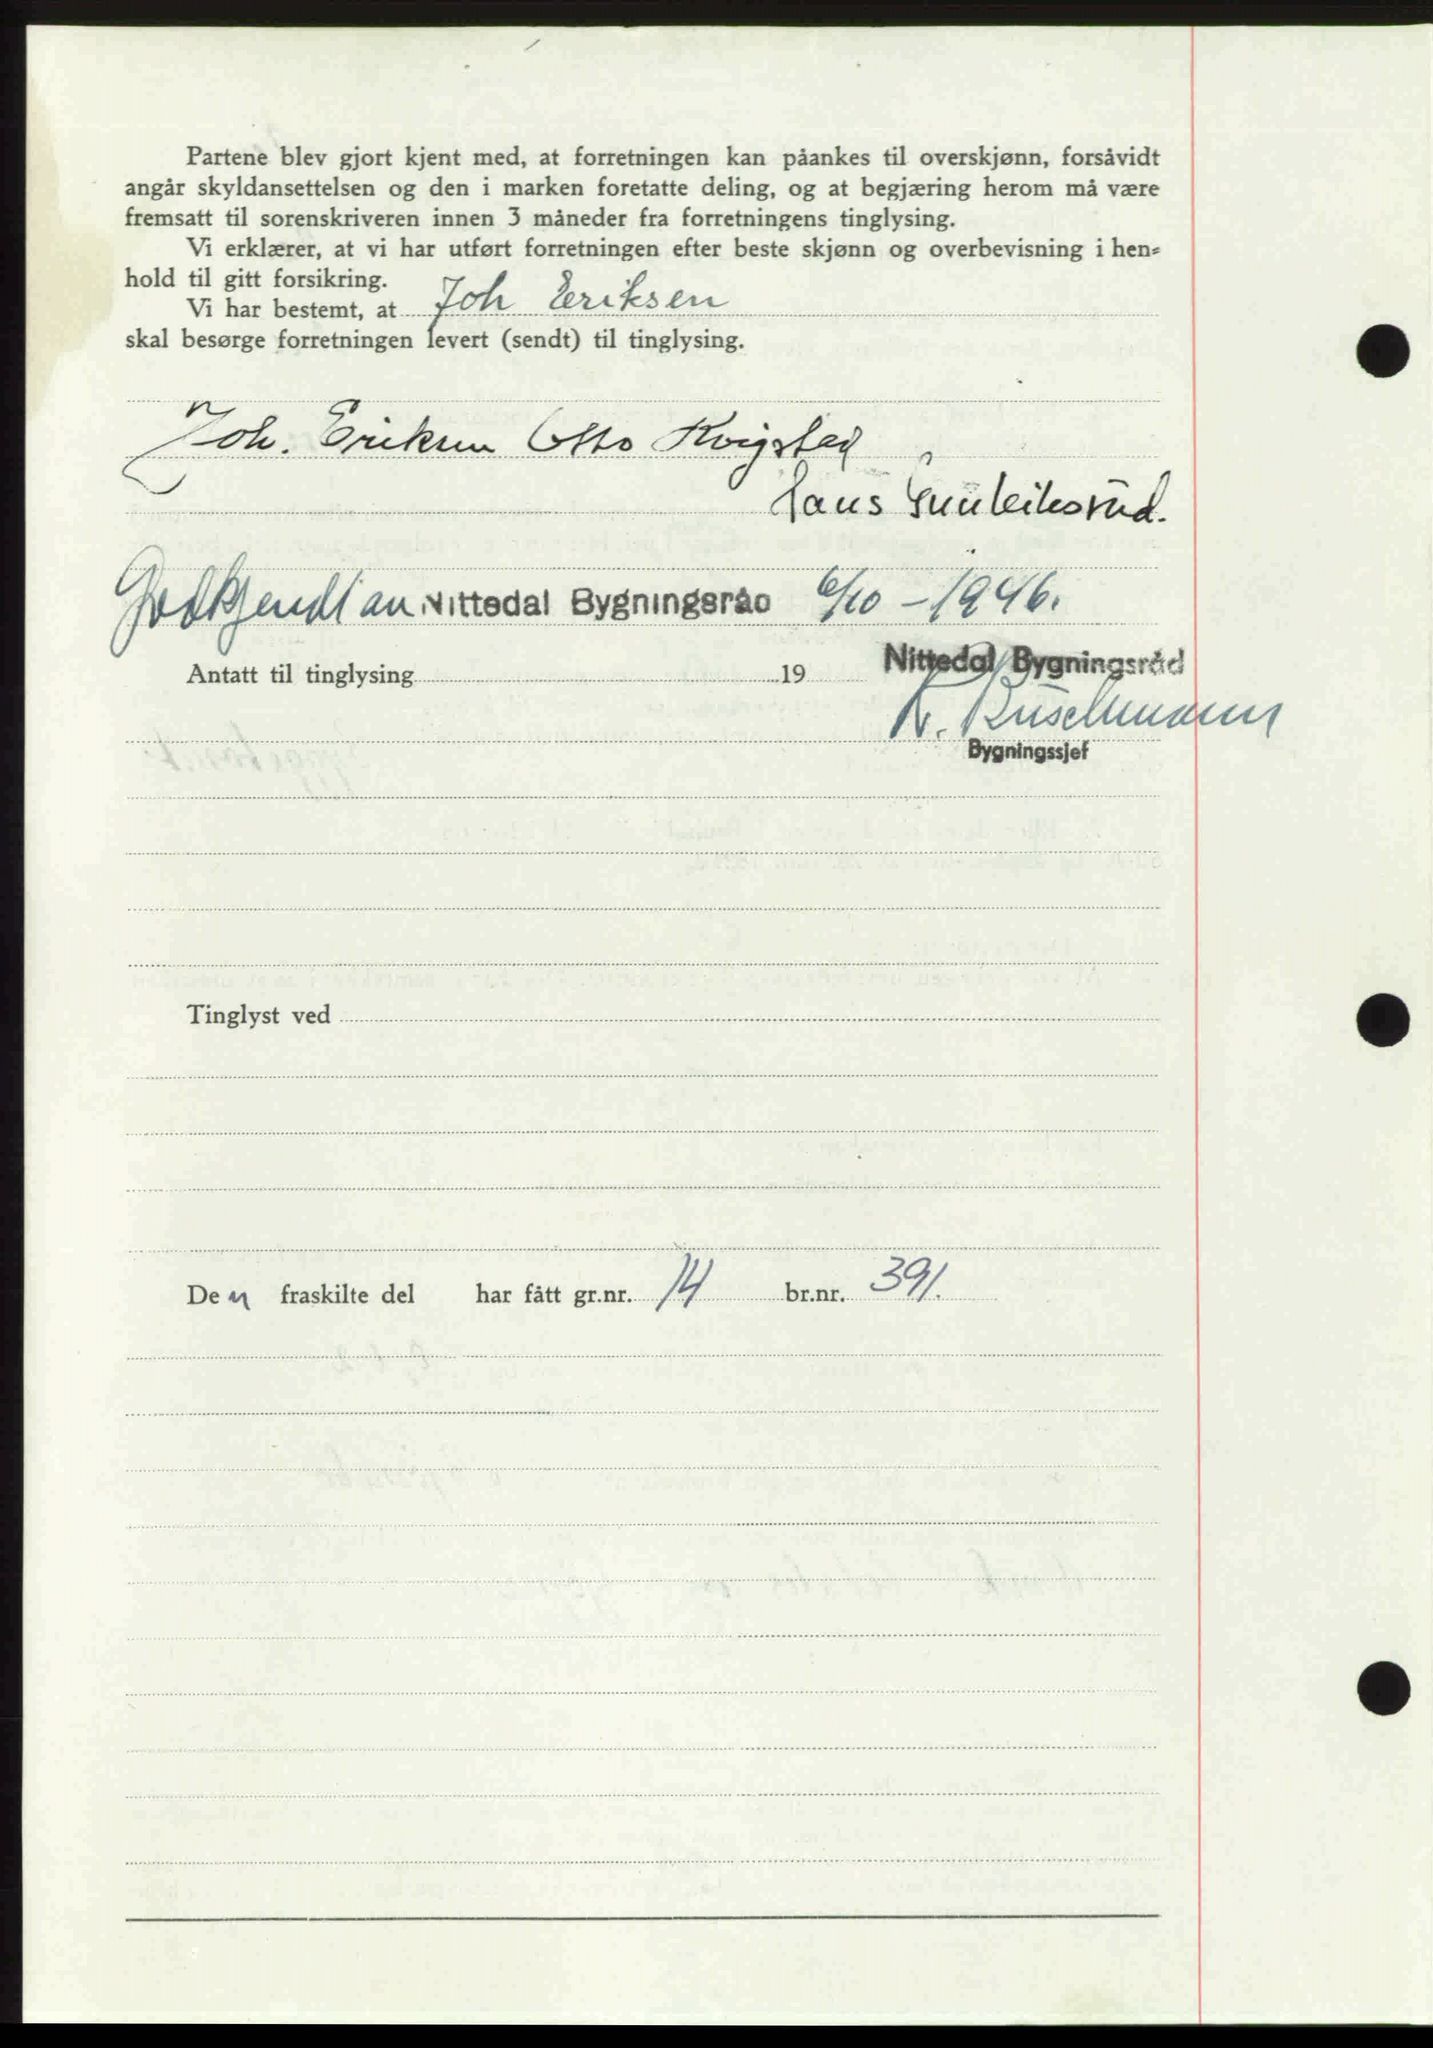 Partene blev gjort kjent med, at forretningen kan påankes til overskjønn, forsåvidt
angår skyldansettelsen og den i marken foretatte deling, og at begjæring herom må være
fremsatt til sorenskriveren innen 3 måneder fra forretningens tinglysing.
Vi erklærer, at vi har utført forretningen efter beste skjønn og overbevisning i hen-
hold til gitt forsikring.
Vi har bestemt, at Joh Eriksen
skal besørge forretningen levert (sendt) til tinglysing.
Joh. Eriksen Otto Kvigstad
Hans Gunleiksrud.
Godkjendt av Nittedal Bygningsråd 6/10 - 1946.
Antatt til tinglysing 19
Nittedal Bygningsråd
K. Buschmann
Bygningssjef
Tinglyst ved
Den fraskilte del har fått gr.nr. 14 br.nr. 391.